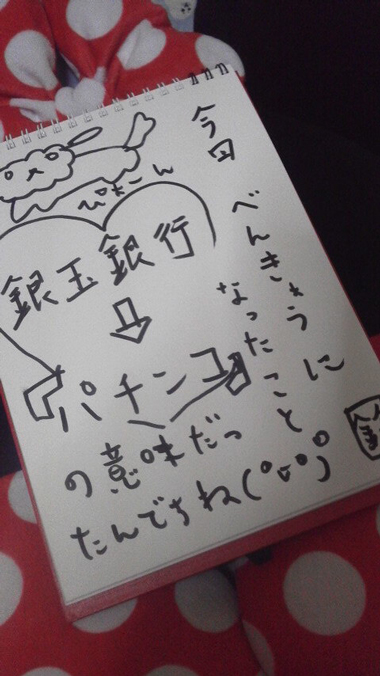 今回
べんきょうに
なったこと
ぴょーん
銀玉銀行
⇩
パチンコ
の意味だっ
たんですね(°▿°)